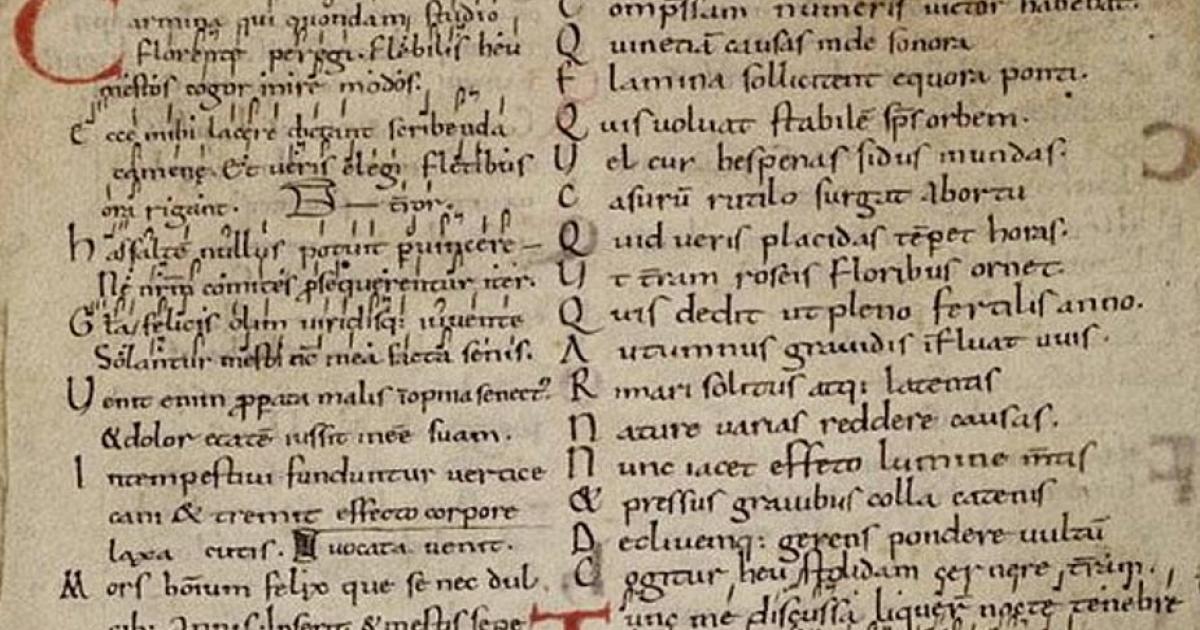 Carmina qui quondam studio
florente peregi. flebilis heu
mestos cogor inire modos.
Ecce mihi lacere dictant scribenda
camene. Et veris elegi fletibus
ora rigant.
has saltē nullus potuit puincere
Ne nrm̄ comites p̱sequerentur iter.
Gl̄a felicis olim uiridisq: iuuente
Solantur mesti nc̄ mea facta senis.
Uenit enim p̱pata malis īopina senect?
& dolor etatē iussit inēe suam.
Intempestiui funduntur uertice
cani & tremit effecto corpore
laxa cutis. uocata uenit.
Mors hōium felix que se nec dul
cibus Annis inserit & mestis sepe
Compssam numeris uictor habebat.
Quinetiā causas unde sonora
Flamina sollicitent equora ponti.
Quis uoluat stabilē sp̄s orbem.
Uel cur hesperias sidus in undas:
Casurū rutilo surgat Abortu
Quid ueris placidas tēpet horas:
Ut t̄ram roseis floribus ornet.
Quis dedit ut pleno fertilis anno.
Autumnus grauidis īfluat uuis.
Rimari solitus atq: latentis
Nature uarias reddere causas.
Nunc iacet effeto lumine m̄tis
& pressus grauibus colla catenis
Decliuemq: gerens pondere uultū
Cogitur heu stolidam cernere t̄ram.
Tunc me discussa liquer̄ nocte tenebre